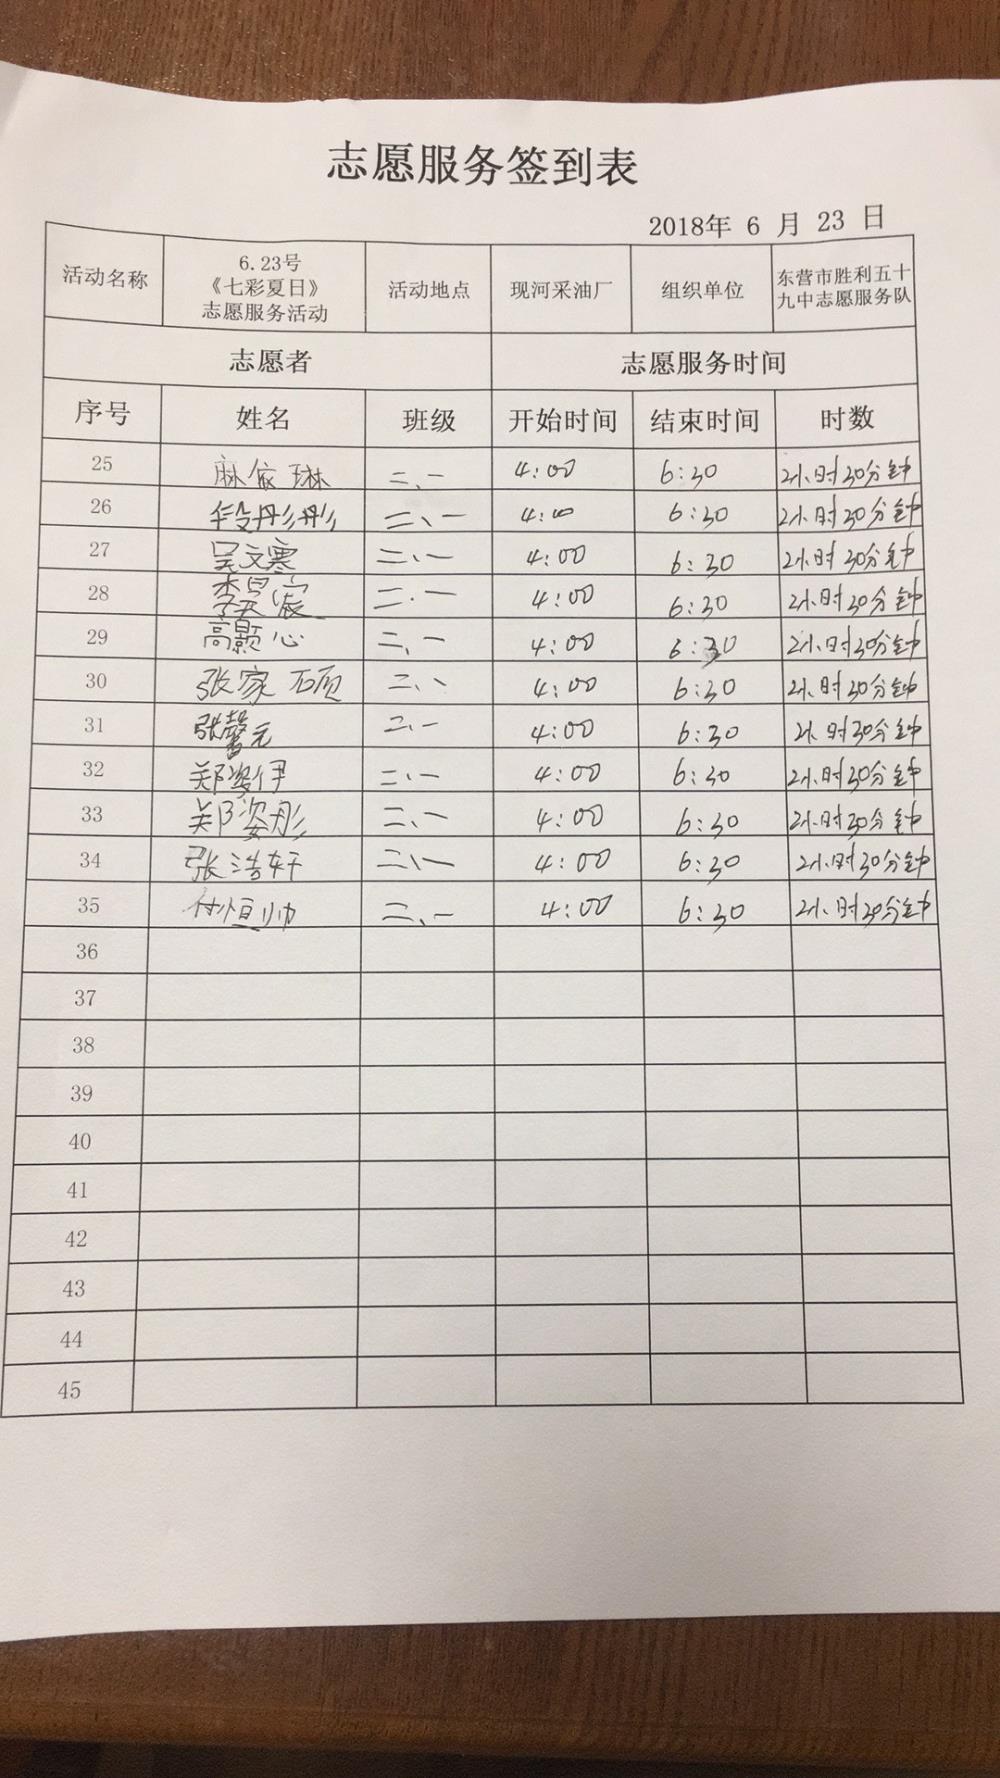 志愿服务签到表
2018年 6 月 23 日
活动名称 6.23号《七彩夏日》志愿服务活动 活动地点 现河采油厂 组织单位 东营市胜利五十九中志愿服务队
志愿者 志愿服务时间
序号 姓名 班级 开始时间 结束时间 时数
25 麻依琳 二、一 4:00 6:30 2小时30分钟
26 段彤彤 二、一 4:00 6:30 2小时30分钟
27 吴文寒 二、一 4:00 6:30 2小时30分钟
28 李昊宸 二.一 4:00 6:30 2小时30分钟
29 高颢心 二、一 4:00 6:30 2小时30分钟
30 张家硕 二、、 4:00 6:30 2小时30分钟
31 张馨元 二、一 4:00 6:30 2小时30分钟
32 郑姿伊 二、一 4:00 6:30 2小时30分钟
33 郑姿彤 二、一 4:00 6:30 2小时30分钟
34 张浩轩 二、一 4:00 6:30 2小时30分钟
35 付恒帅 二、一 4:00 6:30 2小时30分钟
36
37
38
39
40
41
42
43
44
45